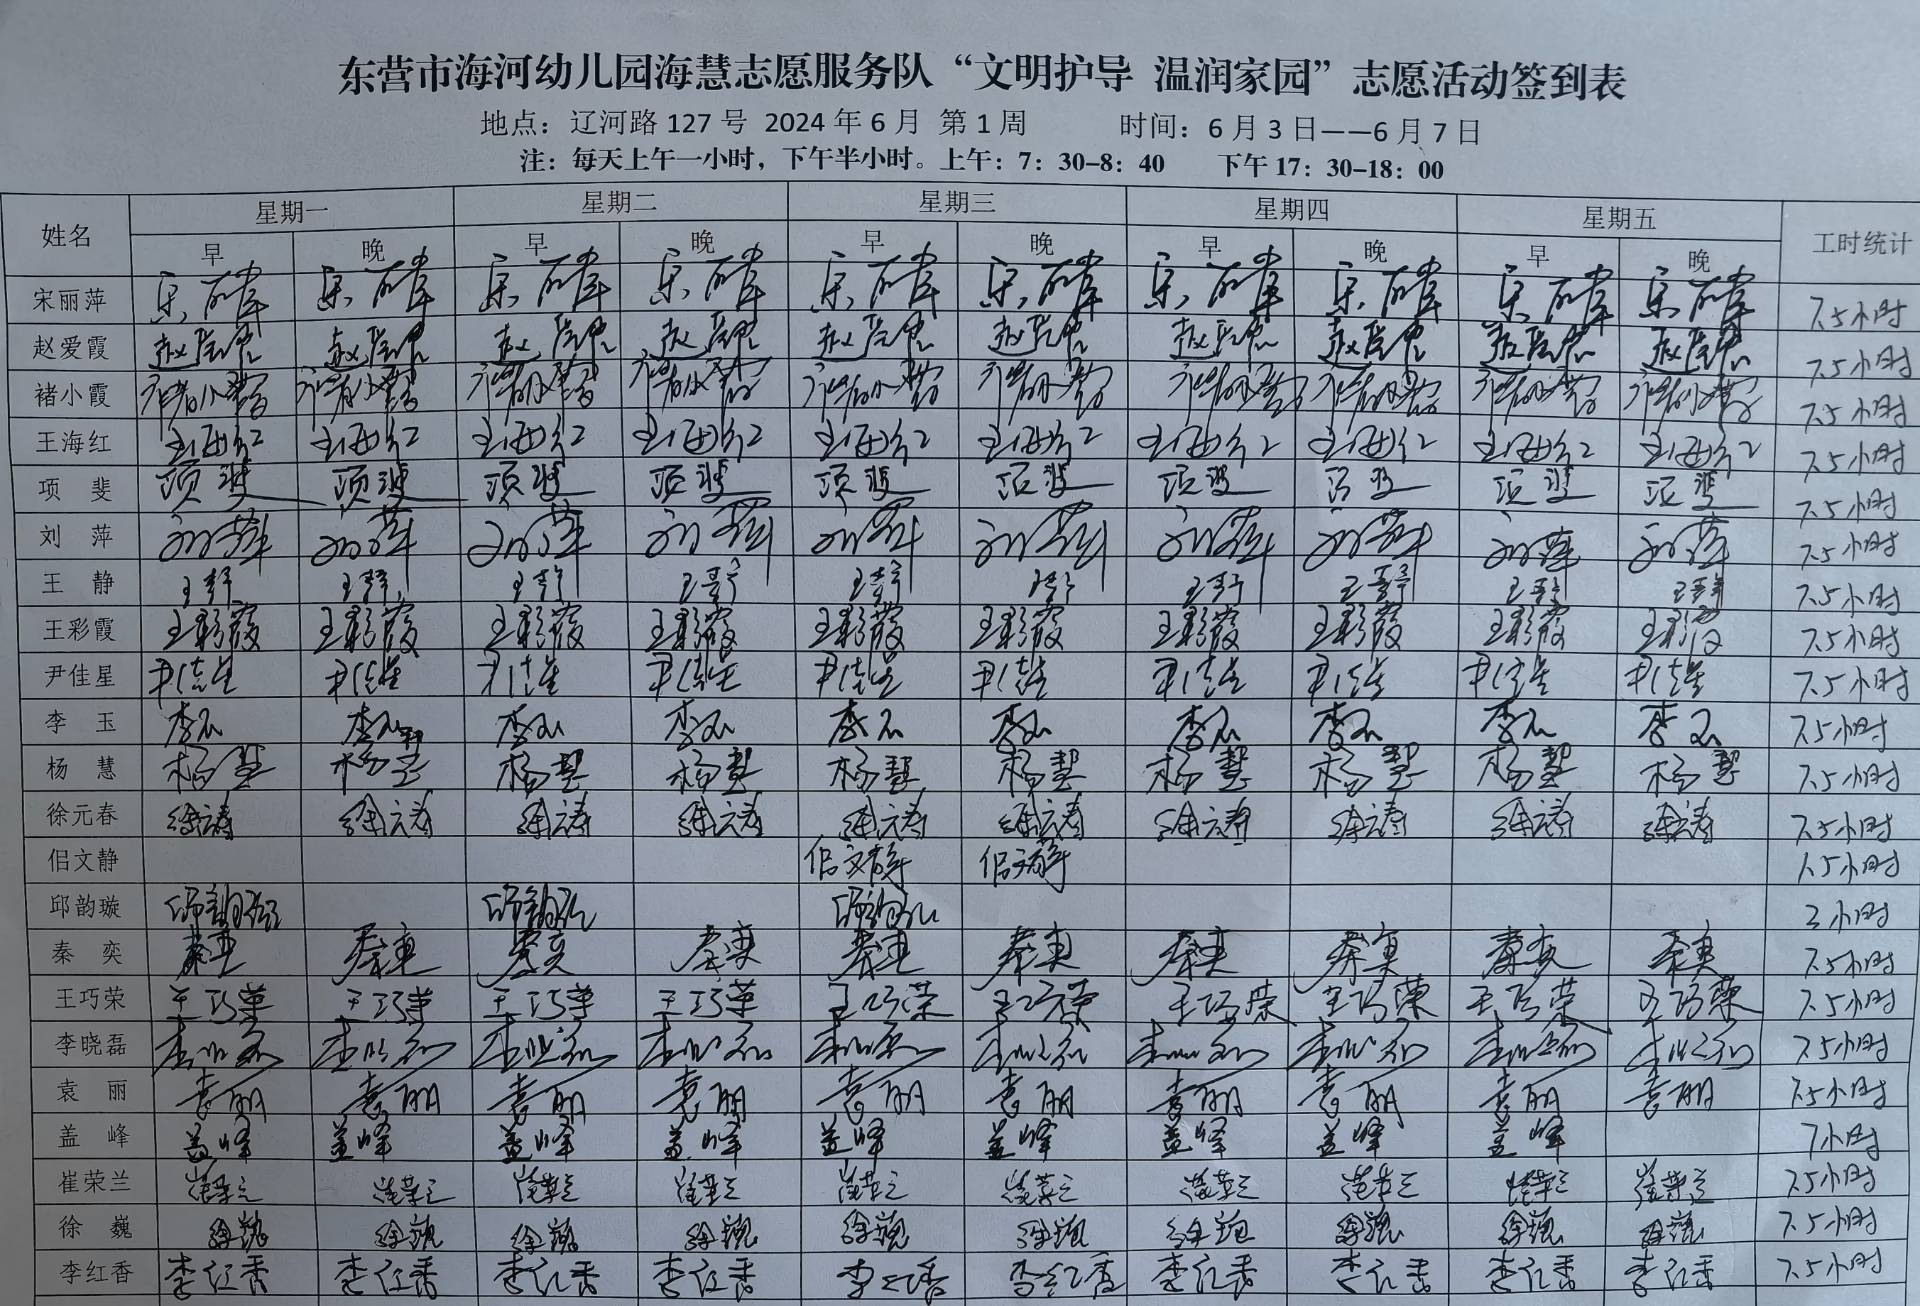 东营市海河幼儿园海慧志愿服务队“文明护导 温润家园”志愿活动签到表
地点：辽河路 127 号 2024 年 6 月 第 1 周 时间：6 月 3 日——6 月 7 日
注：每天上午一小时，下午半小时。上午：7：30-8：40 下午 17：30-18：00
姓名 星期一 星期二 星期三 星期四 星期五 工时统计
早 晚 早 晚 早 晚 早 晚 早 晚
宋丽萍 7.5小时
赵爱霞 7.5小时
褚小霞 褚小霞 褚小霞 褚小霞 褚小霞 褚小霞 褚小霞 褚小霞 褚小霞 褚小霞 褚小霞 7.5小时
王海红 王海红 王海红 王海红 王海红 王海红 王海红 王海红 王海红 王海红 王海红 7.5小时
项斐 项斐 项斐 项斐 项斐 项斐 项斐 项斐 项斐 项斐 项斐 7.5小时
刘萍 刘萍 刘萍 刘萍 刘萍 刘萍 刘萍 刘萍 刘萍 刘萍 刘萍 7.5小时
王静 王静 王静 王静 王静 王静 王静 王静 王静 王静 王静 7.5小时
王彩霞 王彩霞 王彩霞 王彩霞 王彩霞 王彩霞 王彩霞 王彩霞 王彩霞 王彩霞 王彩霞 7.5小时
尹佳星 尹佳星 尹佳星 尹佳星 尹佳星 尹佳星 尹佳星 尹佳星 尹佳星 尹佳星 尹佳星 7.5小时
李玉 李玉 李玉 李玉 李玉 李玉 李玉 李玉 李玉 李玉 李玉 7.5小时
杨慧 杨慧 杨慧 杨慧 杨慧 杨慧 杨慧 杨慧 杨慧 杨慧 杨慧 7.5小时
徐元春 徐元春 徐元春 徐元春 徐元春 徐元春 徐元春 徐元春 徐元春 徐元春 徐元春 7.5小时
佀文静 佀文静 佀文静 1.5小时
邱韵璇 邱韵璇 邱韵璇 邱韵璇 3小时
秦奕 秦奕 秦奕 秦奕 秦奕 秦奕 秦奕 秦奕 秦奕 秦奕 秦奕 7.5小时
王巧荣 王巧荣 王巧荣 王巧荣 王巧荣 王巧荣 王巧荣 王巧荣 王巧荣 王巧荣 王巧荣 7.5小时
李晓磊 7.5小时
袁丽 袁丽 袁丽 袁丽 袁丽 袁丽 袁丽 袁丽 袁丽 袁丽 袁丽 7.5小时
盖峰 盖峰 盖峰 盖峰 盖峰 盖峰 盖峰 盖峰 盖峰 盖峰 7小时
崔荣兰 崔荣兰 崔荣兰 崔荣兰 崔荣兰 崔荣兰 崔荣兰 崔荣兰 崔荣兰 崔荣兰 崔荣兰 7.5小时
徐巍 徐巍 徐巍 徐巍 徐巍 徐巍 徐巍 徐巍 徐巍 徐巍 徐巍 7.5小时
李红香 李红香 李红香 李红香 李红香 李红香 李红香 李红香 李红香 李红香 李红香 7.5小时